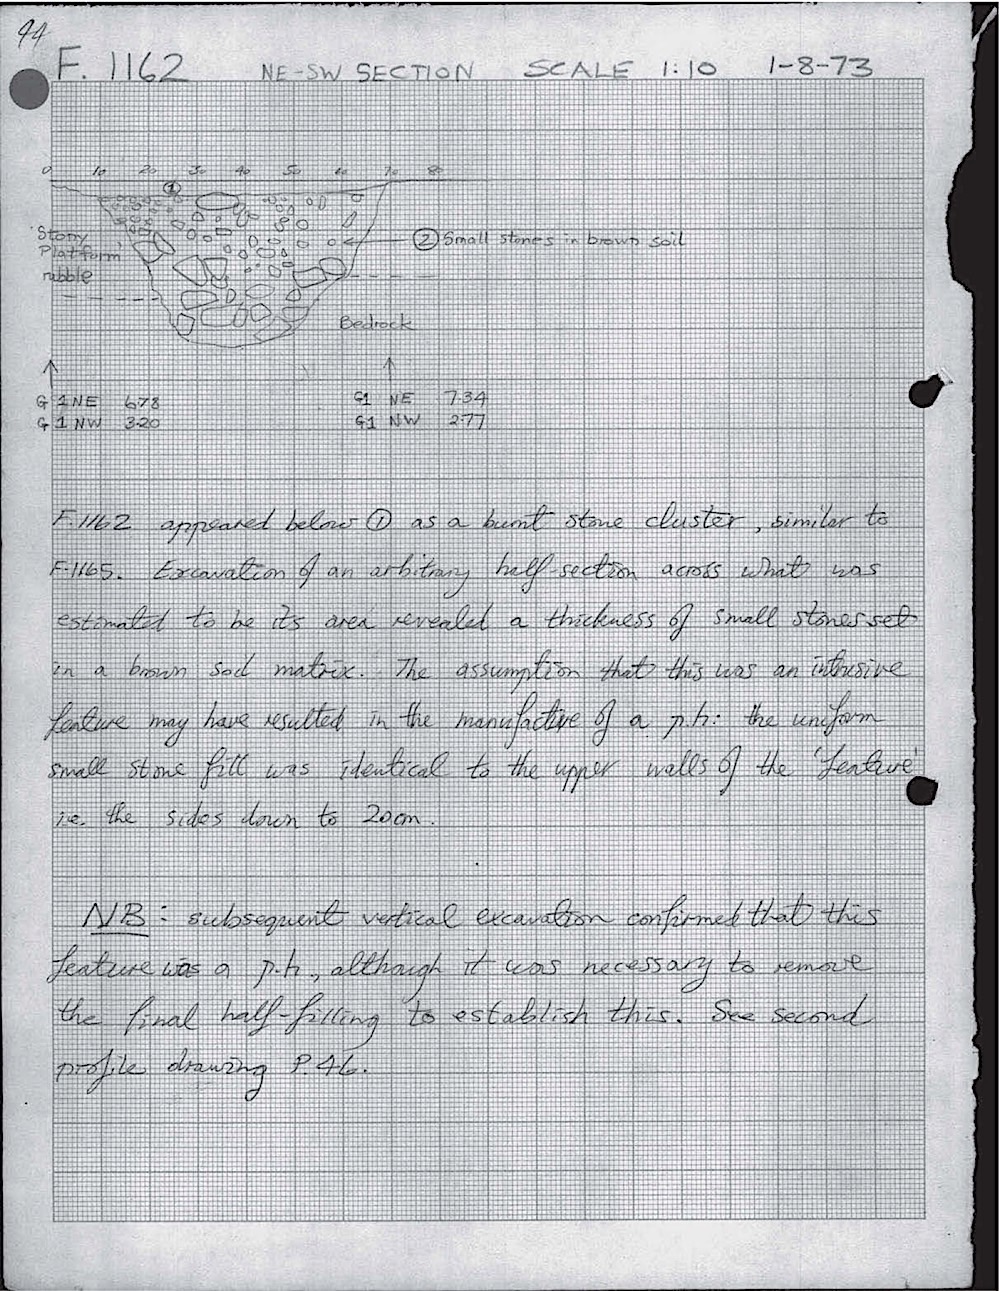 44
F. 1162 NE-SW SECTION SCALE 1:10 1-8-73
0 10 20 30 40 50 60 70 80
①
'Stony
Platform'
rubble
② Small stones in brown soil
Bedrock
G 1 NE 6.78
G 1 NW 3.20
G1 NE 7.34
G1 NW 2.77
F.1162 appeared below ① as a burnt stone cluster, similar to
F.1165. Excavation of an arbitrary half-section across what was
estimated to be its area revealed a thickness of small stones set
in a brown soil matrix. The assumption that this was an intrusive
feature may have resulted in the manufactive of a p.h: the uniform
small stone fill was identical to the upper walls of the 'feature'
i.e. the sides down to 20cm.
NB: subsequent vertical excavation confirmed that this
feature was a p.h., although it was necessary to remove
the final half-filling to establish this. See second
profile drawing P.46.